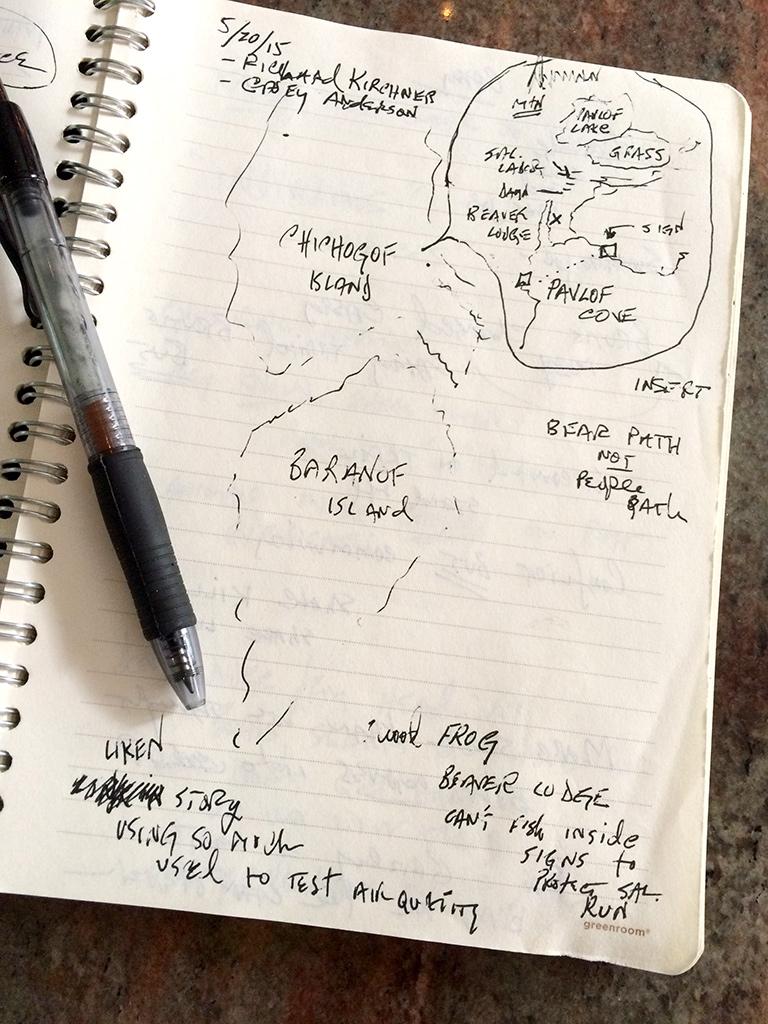 5/20/15
- RICHAARD KIRCHNER
- COREY ANDERSON
MTN
PAVLOF
LAKE
GRASS
SAL.
LADDER
DAM
BEAVER
LODGE
X
SIGN
PAVLOF
COVE
INSERT
CHICHOGOF
ISLAND
BARANOF
ISLAND
BEAR PATH
NOT
PEOPLE
PATH
LIKEN
STORY
USING SO MUCH
USED TO TEST AIR QUALITY
wood FROG
BEAVER LODGE
CAN'T FISH INSIDE
SIGNS to
PROTECT SAL.
RUN
greenroom®